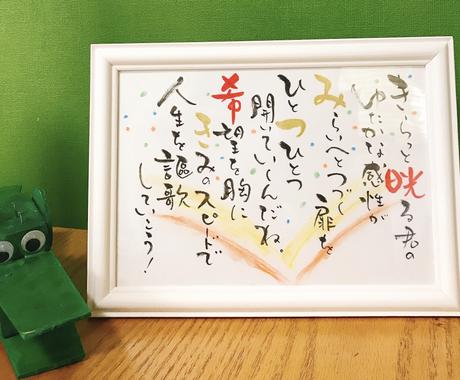 きらっと晄る君の
ゆたかな感性が
みらいへとつづく扉を
ひとつひとつ
開いていくんだね。
希望を胸に
きみのスピードで
人生を謳歌
していこう!